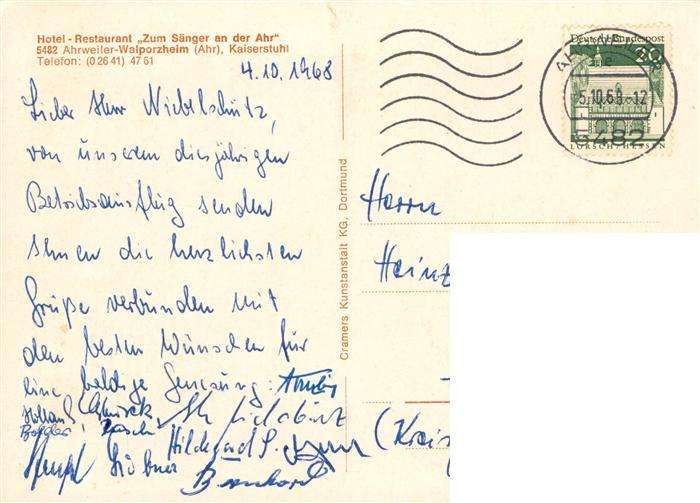 Hotel - Restaurant „Zum Sänger an der Ahr“
5482 Ahrweiler-Walporzheim (Ahr), Kaiserstuhl
Telefon: (0 26 41) 47 61
4.10.1968
Lieber Herr Niebelschütz,
von unserem diesjährigen
Betriebsausflug senden
Ihnen die herzlichsten
Grüße verbunden mit
den besten Wünschen für
eine baldige Genesung:
Hildegard S.
Bernhard
Cramers Kunstanstalt KG, Dortmund
Deutsche Bundespost
20
5.10.68-12
5482
LORSCH/HESSEN
Herrn
Heinz
(Kreis